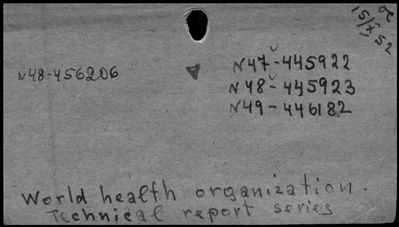 15/X 52
N48-456206
N47-445922
N48-445923
N49-446182
World health organization.
Technical report series